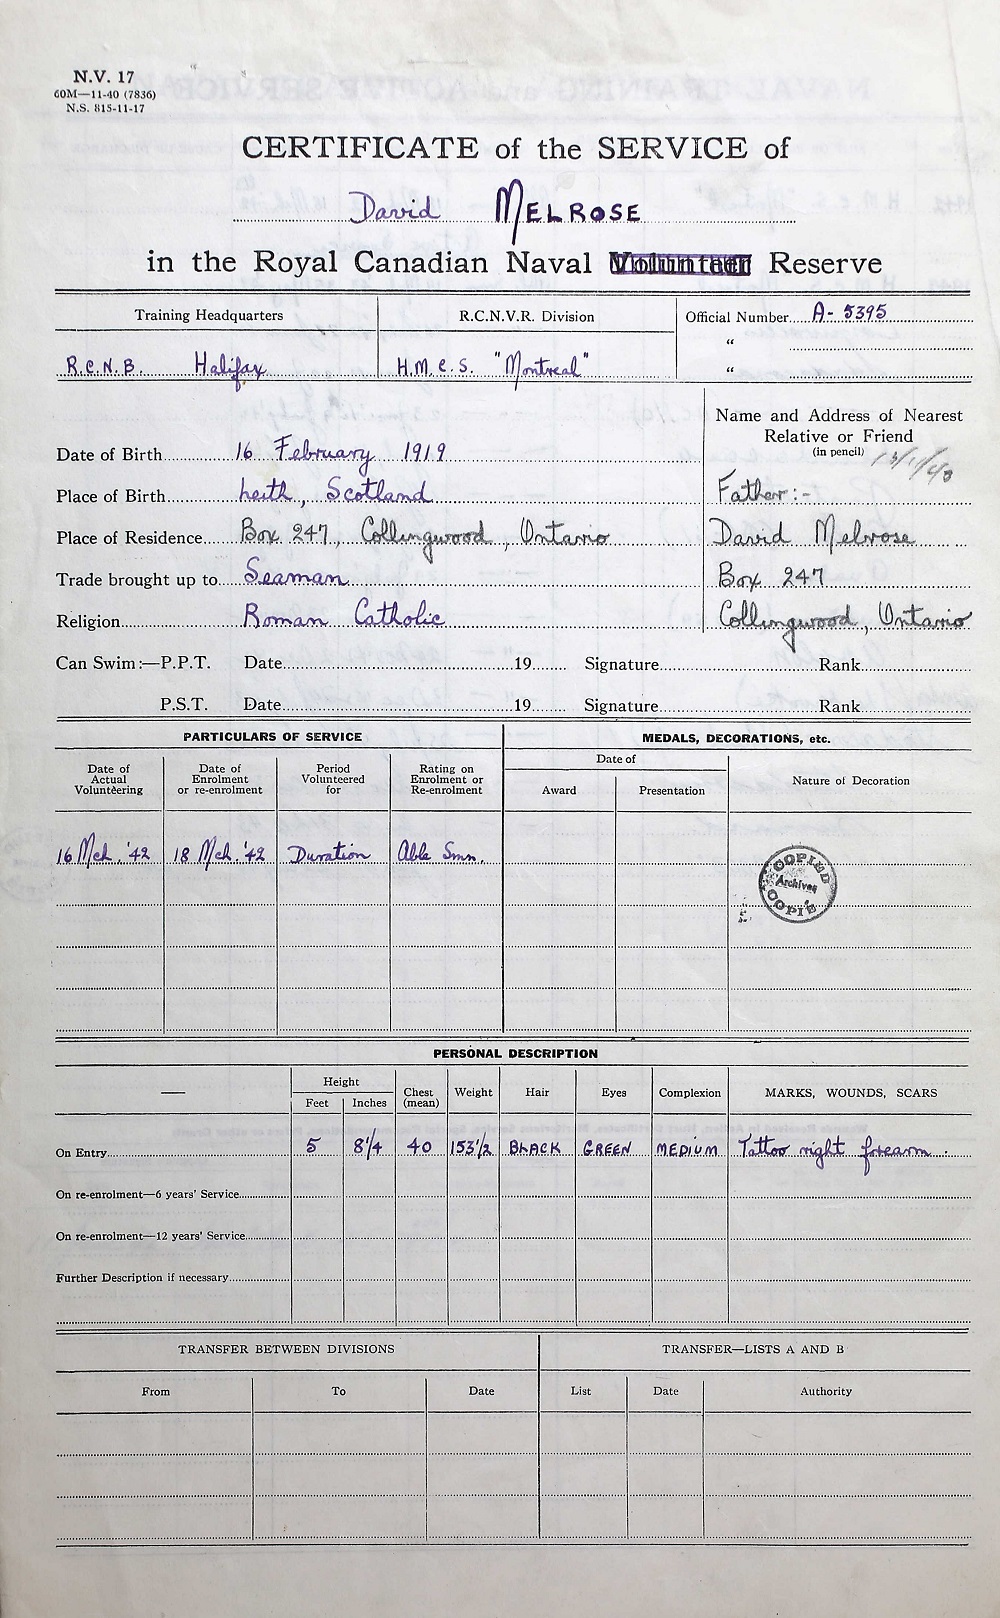 N.V. 17
60M—11-40 (7836)
N.S. 815-11-17
CERTIFICATE of the SERVICE of
David MELROSE
in the Royal Canadian Naval Volunteer Reserve
Training Headquarters R.C.N.V.R. Division Official Number A- 5395
"
R.C.N.B. Halifax H.M.C.S. "Montreal" "
Name and Address of Nearest
Relative or Friend
(in pencil) 13/11/40
Date of Birth 16 February 1919
Place of Birth Leith, Scotland Father:-
Place of Residence Box 247, Collingwood, Ontario David Melrose
Trade brought up to Seaman Box 247
Religion Roman Catholic Collingwood, Ontario
Can Swim:—P.P.T. Date 19 Signature Rank
P.S.T. Date 19 Signature Rank
PARTICULARS OF SERVICE MEDALS, DECORATIONS, etc.
Date of Actual Volunteering Date of Enrolment or re-enrolment Period Volunteered for Rating on Enrolment or Re-enrolment Date of Award Presentation Nature of Decoration
16 Mch. '42 18 Mch. '42 Duration Able Smn.
COPIED
Archives
COPIÉ
PERSONAL DESCRIPTION
— Height Feet Inches Chest (mean) Weight Hair Eyes Complexion MARKS, WOUNDS, SCARS
On Entry 5 8 1/4 40 153 1/2 BLACK GREEN MEDIUM Tattoo right forearm.
On re-enrolment—6 years' Service
On re-enrolment—12 years' Service
Further Description if necessary
TRANSFER BETWEEN DIVISIONS TRANSFER—LISTS A AND B
From To Date List Date Authority